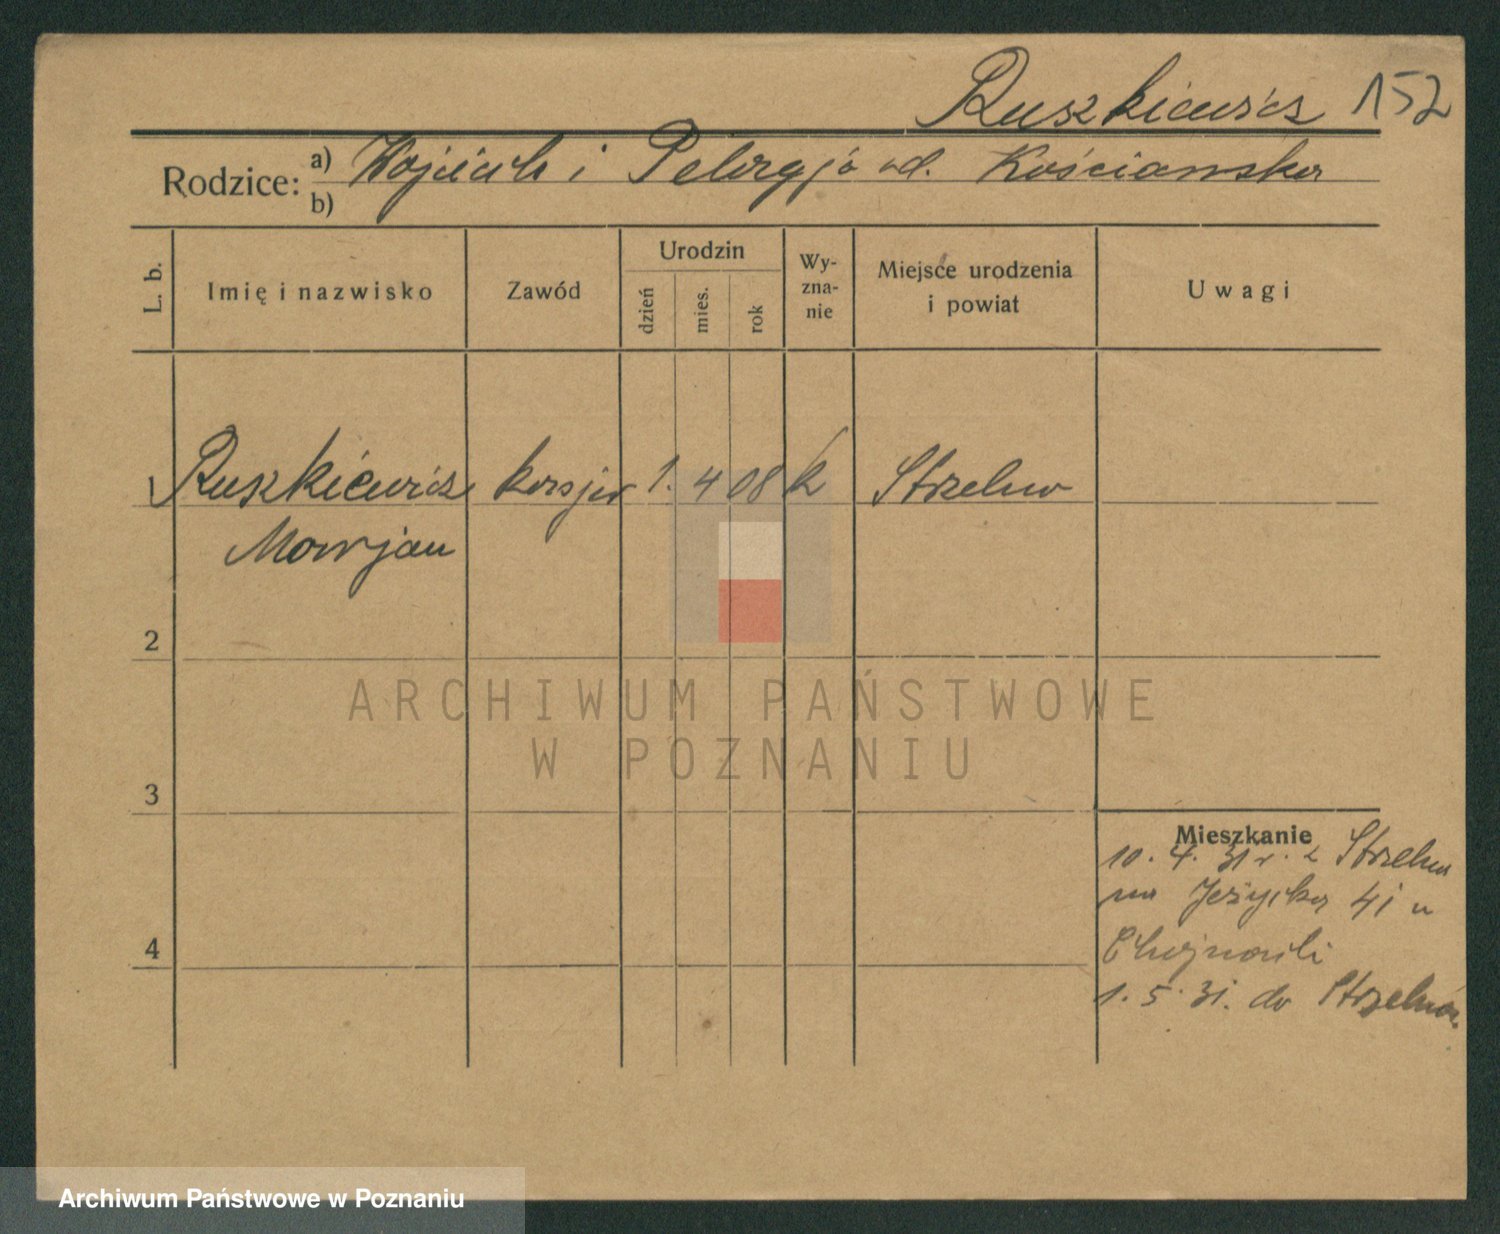 Ruszkiewicz 152
Rodzice: a) Wojciech i Pelagja od. Kościanska
b)
L. b.
Imię i nazwisko
Zawód
Urodzin
dzień
mies.
rok
Wy-
zna-
nie
Miejsce urodzenia
i powiat
Uwagi
1 Ruszkiewicz 1. 4 08 k Strzelno
Marjan
2
ARCHIWUM PAŃSTWOWE
W POZNANIU
3
Mieszkanie
10. 4. 31 r. z Strzelna
na Jeżycka 41 u
4
1. 5. 31. do Strzelna
Archiwum Państwowe w Poznaniu